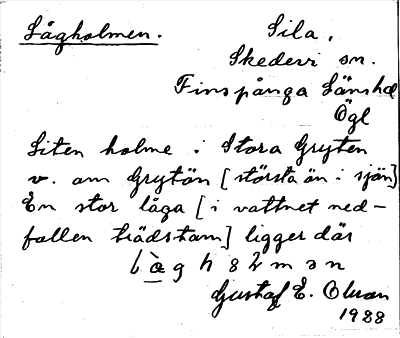 Lågholmen. Sila,
Skedevi sn.
Finspånga Länshd
Ögl
Liten holme i Stora Gryten
v. om Grytön [största ön i sjön]
En stor låga [i vattnet ned-
fallen trädstam] ligger där
Gustaf E. Olsson
1988